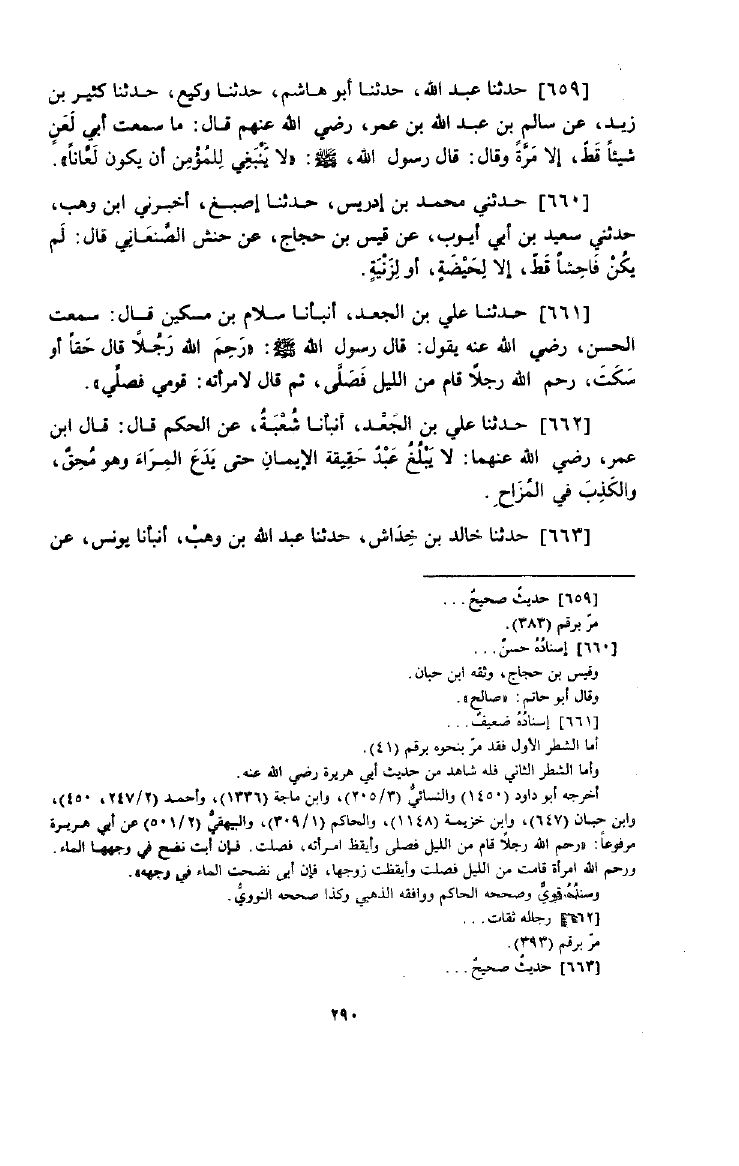 [٦٥٩] حدثنا عبد الله، حدثنا أبو هاشم، حدثنا وكيع، حدثنا كثير بن
زيد، عن سالم بن عبد الله بن عمر، رضي الله عنهم قال: ما سمعت أبي لَعَنٍ
شيئاً قَطّ، إلا مَرَّةً وقال: قال رسول الله، ﷺ: «لا يَنْبَغِي لِلمُؤمِنِ أن يكون لَعَّاناً».
[٦٦٠] حدثني محمد بن إدريس، حدثنا إصبغ، أخبرني ابن وهب،
حدثني سعيد بن أبي أيوب، عن قيس بن حجاج، عن حنش الصَّنعَاني قال: لَم
يكُنْ فَاحِشاً قَطّ، إلا لِحَيْضَةٍ، أو لِزَنْيَةٍ.
[٦٦١] حدثنا علي بن الجعد، أنبأنا سلام بن مسكين قال: سمعت
الحسن، رضي الله عنه يقول: قال رسول الله ﷺ: «رَحِمَ الله رَجُلاً قال حَقاً أو
سَكَتَ، رحم الله رجلاً قام من الليل فَصَلَّى، ثم قال لامرأته: قومي فصلِّي».
[٦٦٢] حدثنا علي بن الجَعْد، أنبأنا شُعْبَةُ، عن الحكم قال: قال ابن
عمر، رضي الله عنهما: لا يَبْلُغُ عَبْدٌ حَقِيقة الإيمانِ حتى يَدَعَ المِرَاءَ وهو مُحِقٌ،
والكَذِبَ في المُزَاحِ.
[٦٦٣] حدثنا خالد بن خِدَاش، حدثنا عبد الله بن وهبْ، أنبأنا يونس، عن
[٦٥٩] حديثٌ صحيحٌ...
مرّ برقم (٣٨٣).
[٦٦٠] إسنادُهُ حسنٌ...
وقيس بن حجاج، وثقه ابن حبان.
وقال أبو حاتم: «صالح».
[٦٦١] إسنادُهُ ضعيفٌ...
أما الشطر الأول فقد مرّ بنحوه برقم (٤١).
وأما الشطر الثاني فله شاهد من حديث أبي هريرة رضي الله عنه.
أخرجه أبو داود (١٤٥٠) والنسائيُّ (٢٠٥/٣)، وابن ماجة (١٣٣٦)، وأحمد (٢٤٧/٢، ٤٥٠)،
وابن حبان (٦٤٧)، وابن خزيمة (١١٤٨)، والحاكم (٣٠٩/١)، والبيهقيُّ (٥٠١/٢) عن أبي هريرة
مرفوعاً: «رحم الله رجلاً قام من الليل فصلى وأيقظ امرأته، فصلت. فإن أبت نضح في وجهها الماء.
ورحم الله امرأة قامت من الليل فصلت وأيقظت زوجها، فإن أبى نضحت الماء في وجهه».
وسندُهُ قويٌّ وصححه الحاكم ووافقه الذهبي وكذا صححه النوويُّ.
[٦٦٢] رجاله ثقات...
مرّ برقم (٣٩٣).
[٦٦٣] حديثٌ صحيحٌ...
٢٩٠